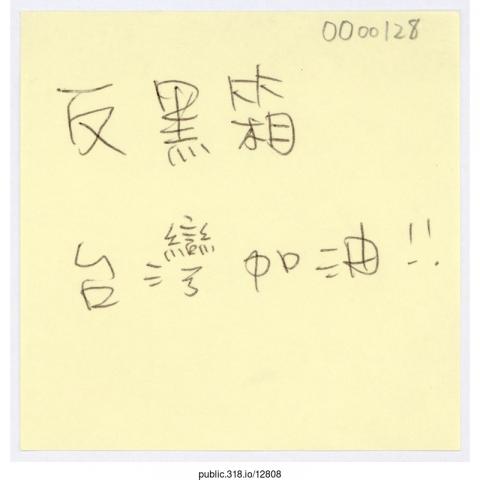 0000128
反黑箱
台灣加油!!
public.318.io/12808